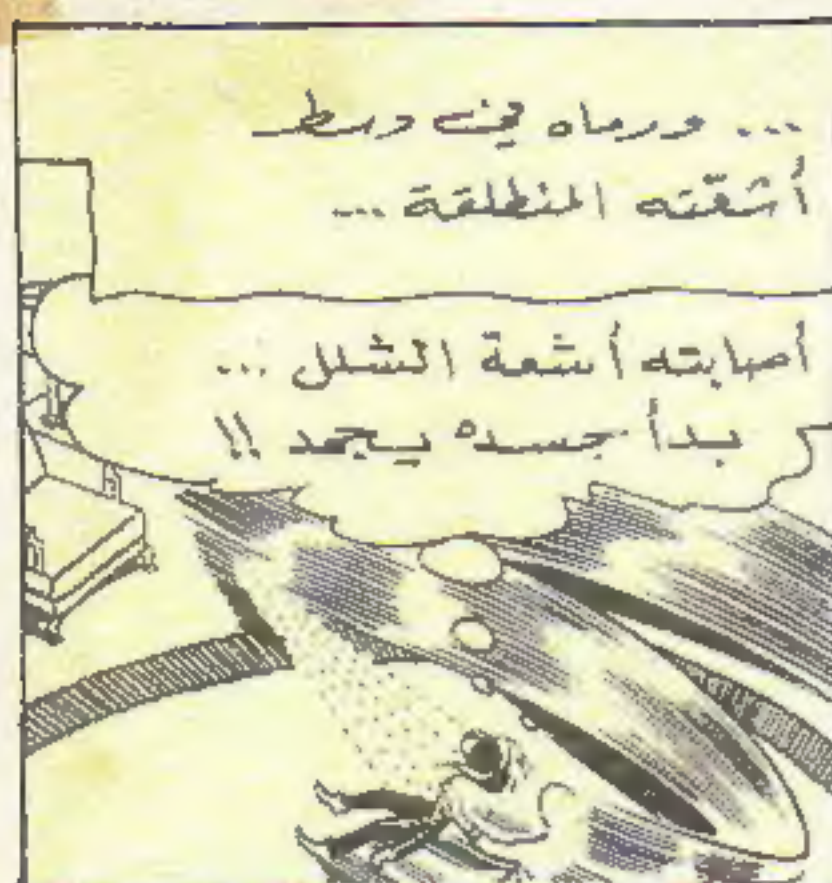 ... ورماه في وسط
أشعّته المنطلقة ...
أصابته أشعة الشلل ...
بدأ جسده يجمد !!